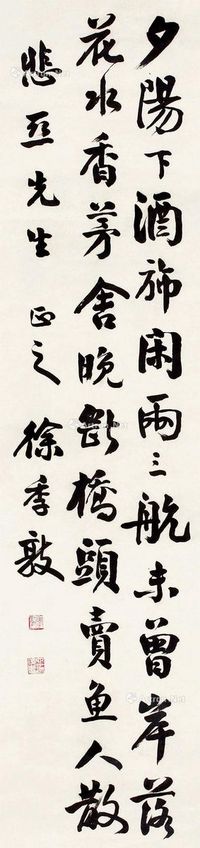 夕陽下酒旆閑兩三航未曾岸落
花水香茅舍晚斷橋頭賣鱼人散
悲亞先生 正之 徐季敦